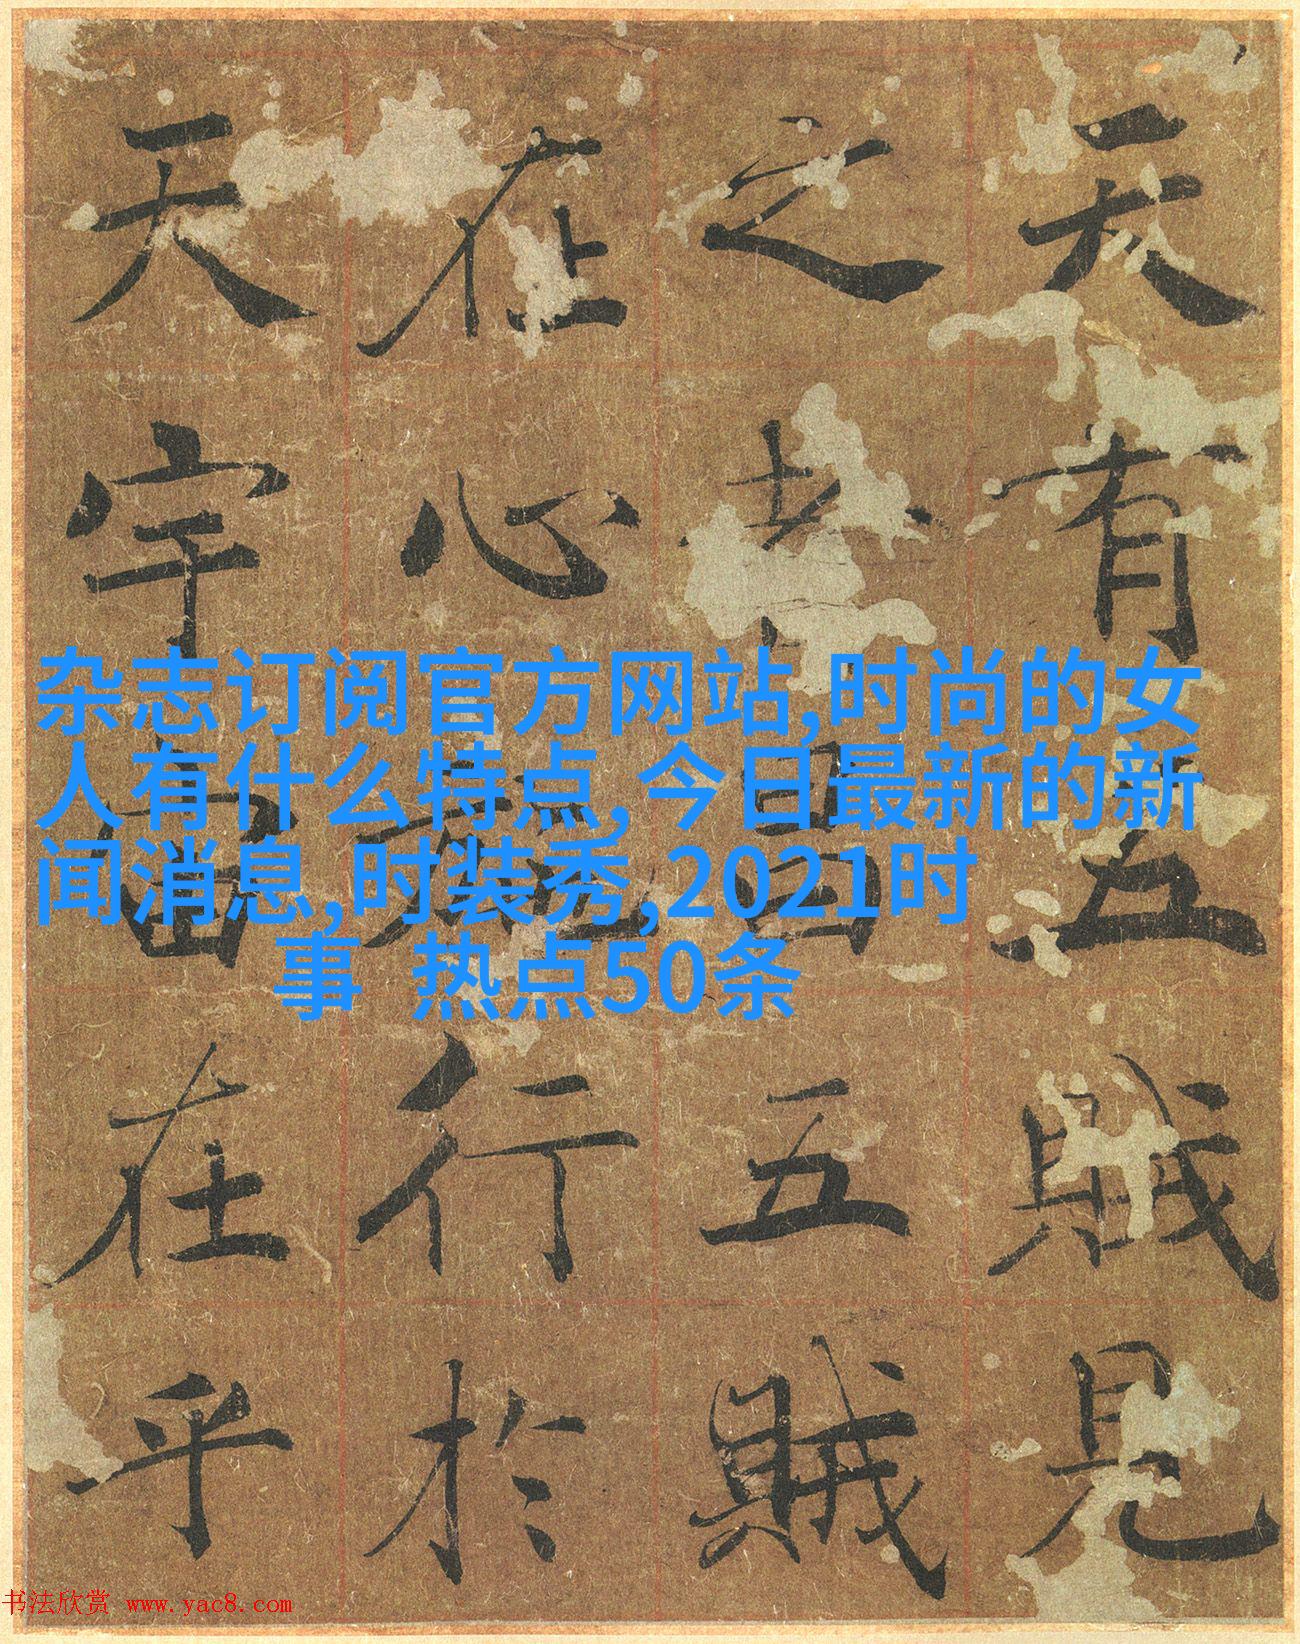 天有五賊見
之者昌五賊
在心施行於
天宇宙在乎
杂志订阅官方网站,时尚的女
人有什么特点,今日最新的新
闻消息,时装秀,2021时
事 热点50条
书法欣赏 www.yac8.com